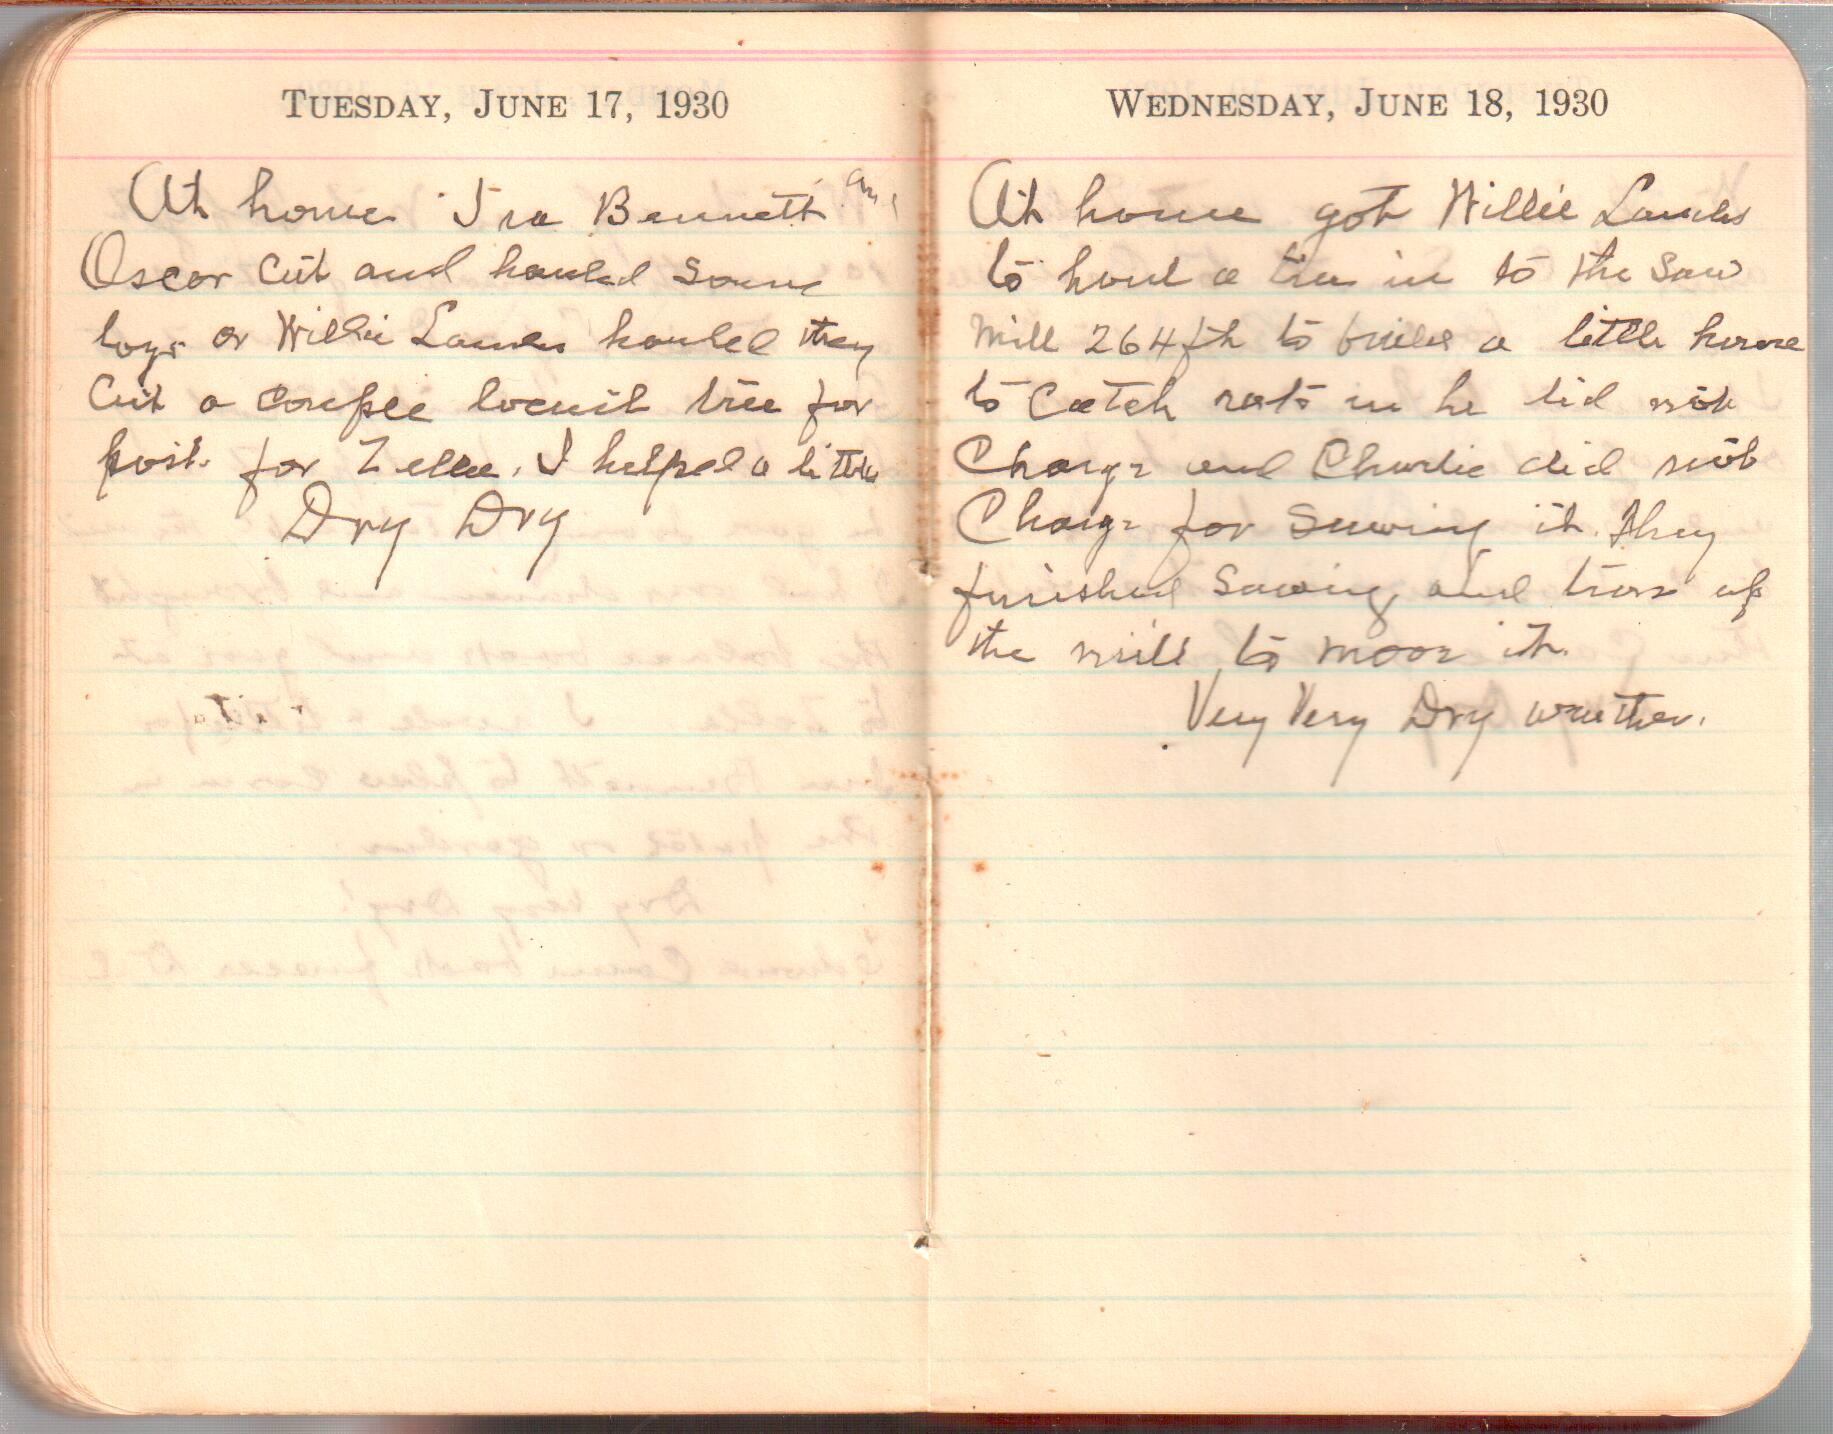 TUESDAY, JUNE 17, 1930
At home Ira Bennett and
Oscar cut and hauled some
logs or Willie hauled they
Cut a couple locust tree for
post for Zella. I helped a little
Dry Dry
WEDNESDAY, JUNE 18, 1930
At home got Willie
to haul a tree in to the Saw
Mill 264 ft to build a little house
to Catch rats in he did not
Charge and Charlie did not
Charge for Sawing it. They
finished Sawing and up
the mill to it.
Very Very Dry weather.